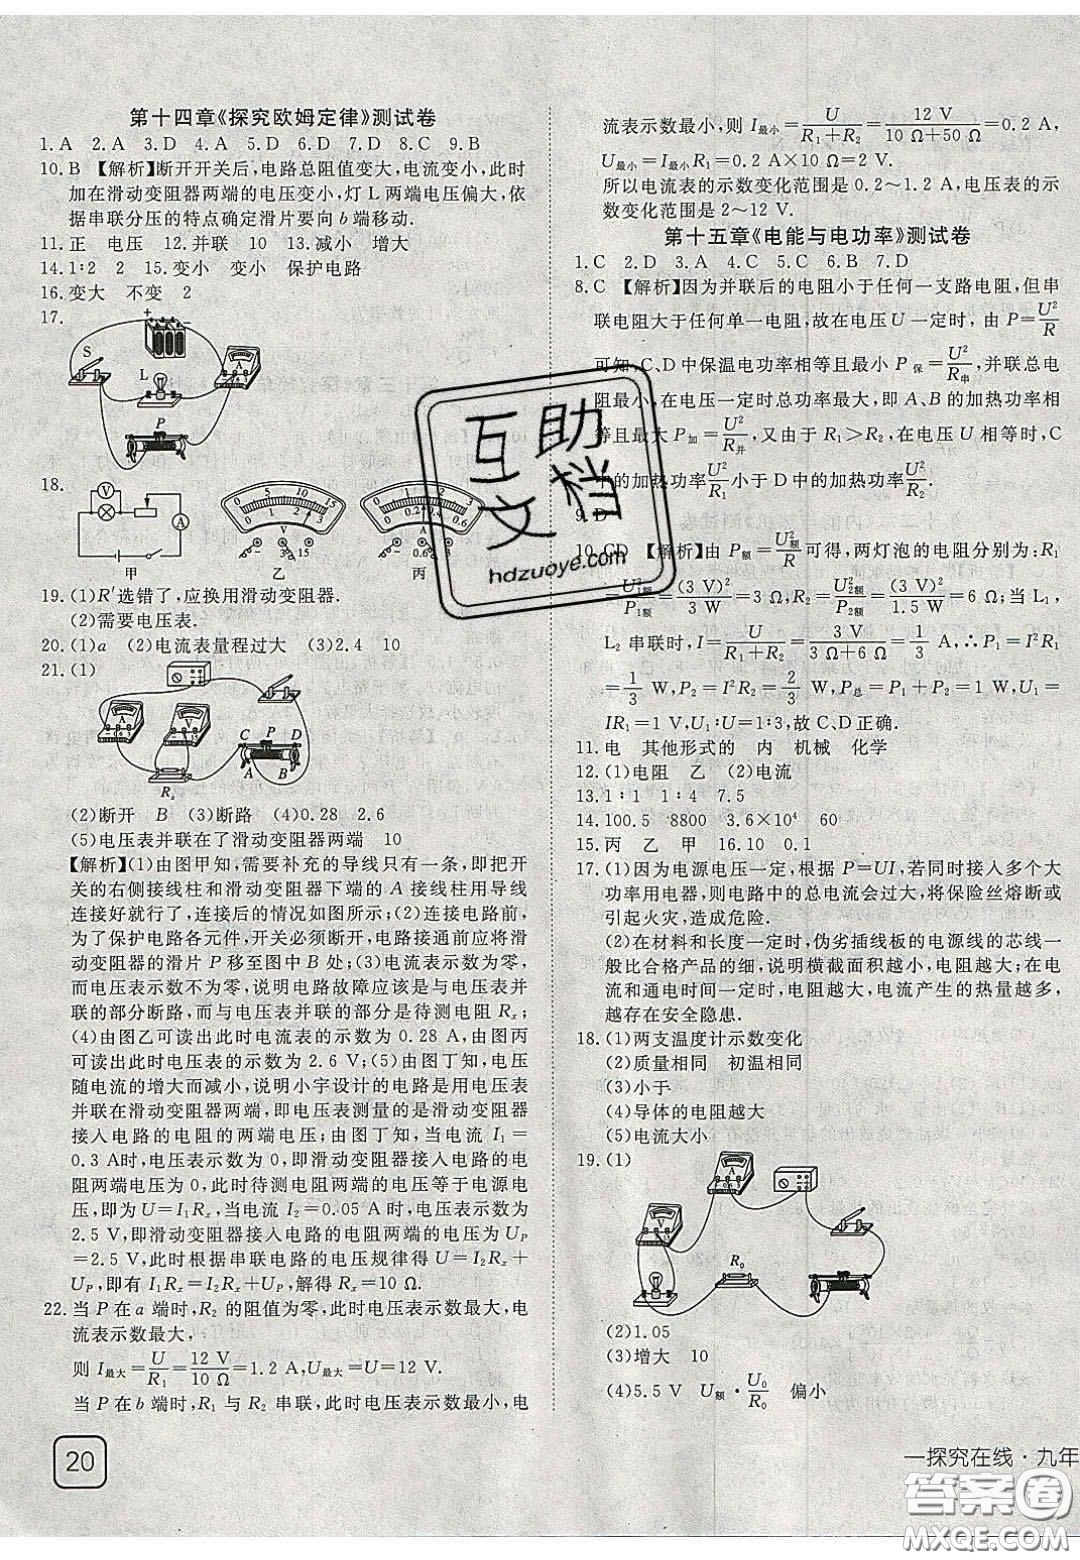 第十四章《探究欧姆定律》测试卷
1.A 2.A 3.D 4.A 5.D 6.D 7.D 8.C 9.B
10.B 【解析】断开开关后,电路总阻值变大,电流变小,此时
加在滑动变阻器两端的电压变小,灯 L 两端电压偏大,依
据串联分压的特点确定滑片要向 b 端移动.
11.正 电压 12.并联 10 13.减小 增大
14.1∶2 2 15.变小 变小 保护电路
16.变大 不变 2
17.
+ −
S
L
P
18.
V
A
甲
0 5 10 15
0 1 2 3
V
− 3 15
乙
0 1 2 3
0 0.2 0.4 0.6
A
− 0.6 3
丙
19.(1)R′选错了,应换用滑动变阻器.
(2)需要电压表.
20.(1)a (2)电流表量程过大 (3)2.4 10
21.(1)
A
V
C P D
A B
Rx
(2)断开 B (3)断路 (4)0.28 2.6
(5)电压表并联在了滑动变阻器两端 10
【解析】(1)由图甲知,需要补充的导线只有一条,即把开
关的右侧接线柱和滑动变阻器下端的 A 接线柱用导线
连接好就行了,连接后的情况如图所示;(2)连接电路前,
为了保护电路各元件,开关必须断开,电路接通前应将滑
动变阻器的滑片 P 移至图中 B 处;(3)电流表示数为零,
而电压表示数不为零,说明电路故障应该是与电压表并
联的部分断路,而与电压表并联的部分是待测电阻 Rx.
(4)由图乙可读出此时电流表的示数为 0.28 A,由图丙
可读出此时电压表的示数为 2.6 V;(5)由图丁知,电压
随电流的增大而减小,说明小宇设计的电路是用电压表
并联在滑动变阻器两端,即电压表测量的是滑动变阻器
接入电路的电阻的两端电压;由图丁知,当电流 I1=
0.3 A时,电压表示数为 0,即滑动变阻器接入电路的电
阻两端电压为 0,此时待测电阻两端的电压等于电源电
压,即为 U=I1Rx,当电流 I2=0.05 A时,电压表示数为
2.5 V,即滑动变阻器接入电路的电阻两端的电压为 UP
=2.5 V,此时根据串联电路的电压规律得 U=I2Rx+
UP,即有 I1Rx=I2Rx+UP,解得 Rx=10 Ω.
22.当 P 在 a 端时,R2 的阻值为零,此时电压表示数最大,电
流表示数最大,
则 I最大=U/R1=12 V/10 Ω=1.2 A,U最大=U=12 V.
当 P 在 b 端时,R1 与 R2 串联,此时电压表示数最小,电
20
流表示数最小,则 I最小=U/(R1+R2)=12 V/(10 Ω+50 Ω)=0.2 A,
U最小=I最小R1=0.2 A×10 Ω=2 V.
所以电流表的示数变化范围是 0.2~1.2 A,电压表的示
数变化范围是 2~12 V.
第十五章《电能与电功率》测试卷
1.C 2.D 3.A 4.C 5.C 6.B 7.D
8.C 【解析】因为并联后的电阻小于任何一支路电阻,但串
联电阻大于任何单一电阻,故在电压 U 一定时,由 P=U²/R
可知,C、D中保温电功率相等且最小 P保=U²/R串,并联总电
阻最小,在电压一定时总功率最大,即 A、B 的加热功率相
等且最大 P加=U²/R并,又由于 R1>R2,在电压 U 相等时,C
中的加热功率U²/R1小于 D 中的加热功率U²/R2.
9.D
10.CD 【解析】由 P额=U²额/R 可得,两灯泡的电阻分别为:R1
=U²1额/P1额=(3 V)²/3 W=3 Ω,R2=U²2额/P2额=(3 V)²/1.5 W=6 Ω;当 L1、
L2 串联时,I=U/(R1+R2)=3 V/(3 Ω+6 Ω)=1/3 A,∴P1=I²R1
=1/3 W,P2=I²R2=2/3 W,P总=P1+P2=1 W,U1=
IR1=1 V,U1∶U=1∶3,故 C、D 正确.
11.电 其他形式的 内 机械 化学
12.(1)电阻 乙 (2)电流
13.1∶1 1∶4 7.5
14.100.5 8800 3.6×10⁴ 60
15.丙 乙 甲 16.10 0.1
17.(1)因为电源电压一定,根据 P=UI,若同时接入多个大
功率用电器,则电路中的总电流会过大,将保险丝熔断或
引起火灾,造成危险.
(2)在材料和长度一定时,伪劣插线板的电源线的芯线一
般比合格产品的细,说明横截面积越小,电阻越大;在电
流和通电时间一定时,电阻越大,电流产生的热量越多,
越存在安全隐患.
18.(1)两支温度计示数变化
(2)质量相同 初温相同
(3)小于
(4)导体的电阻越大
(5)电流大小
19.(1)
R0
(2)1.05
(3)增大 10
(4)5.5 V U额·U0/R0 偏小
一探究在线·九年
互助
文档
hdzuoye.com
答案卷
MXQE.COM